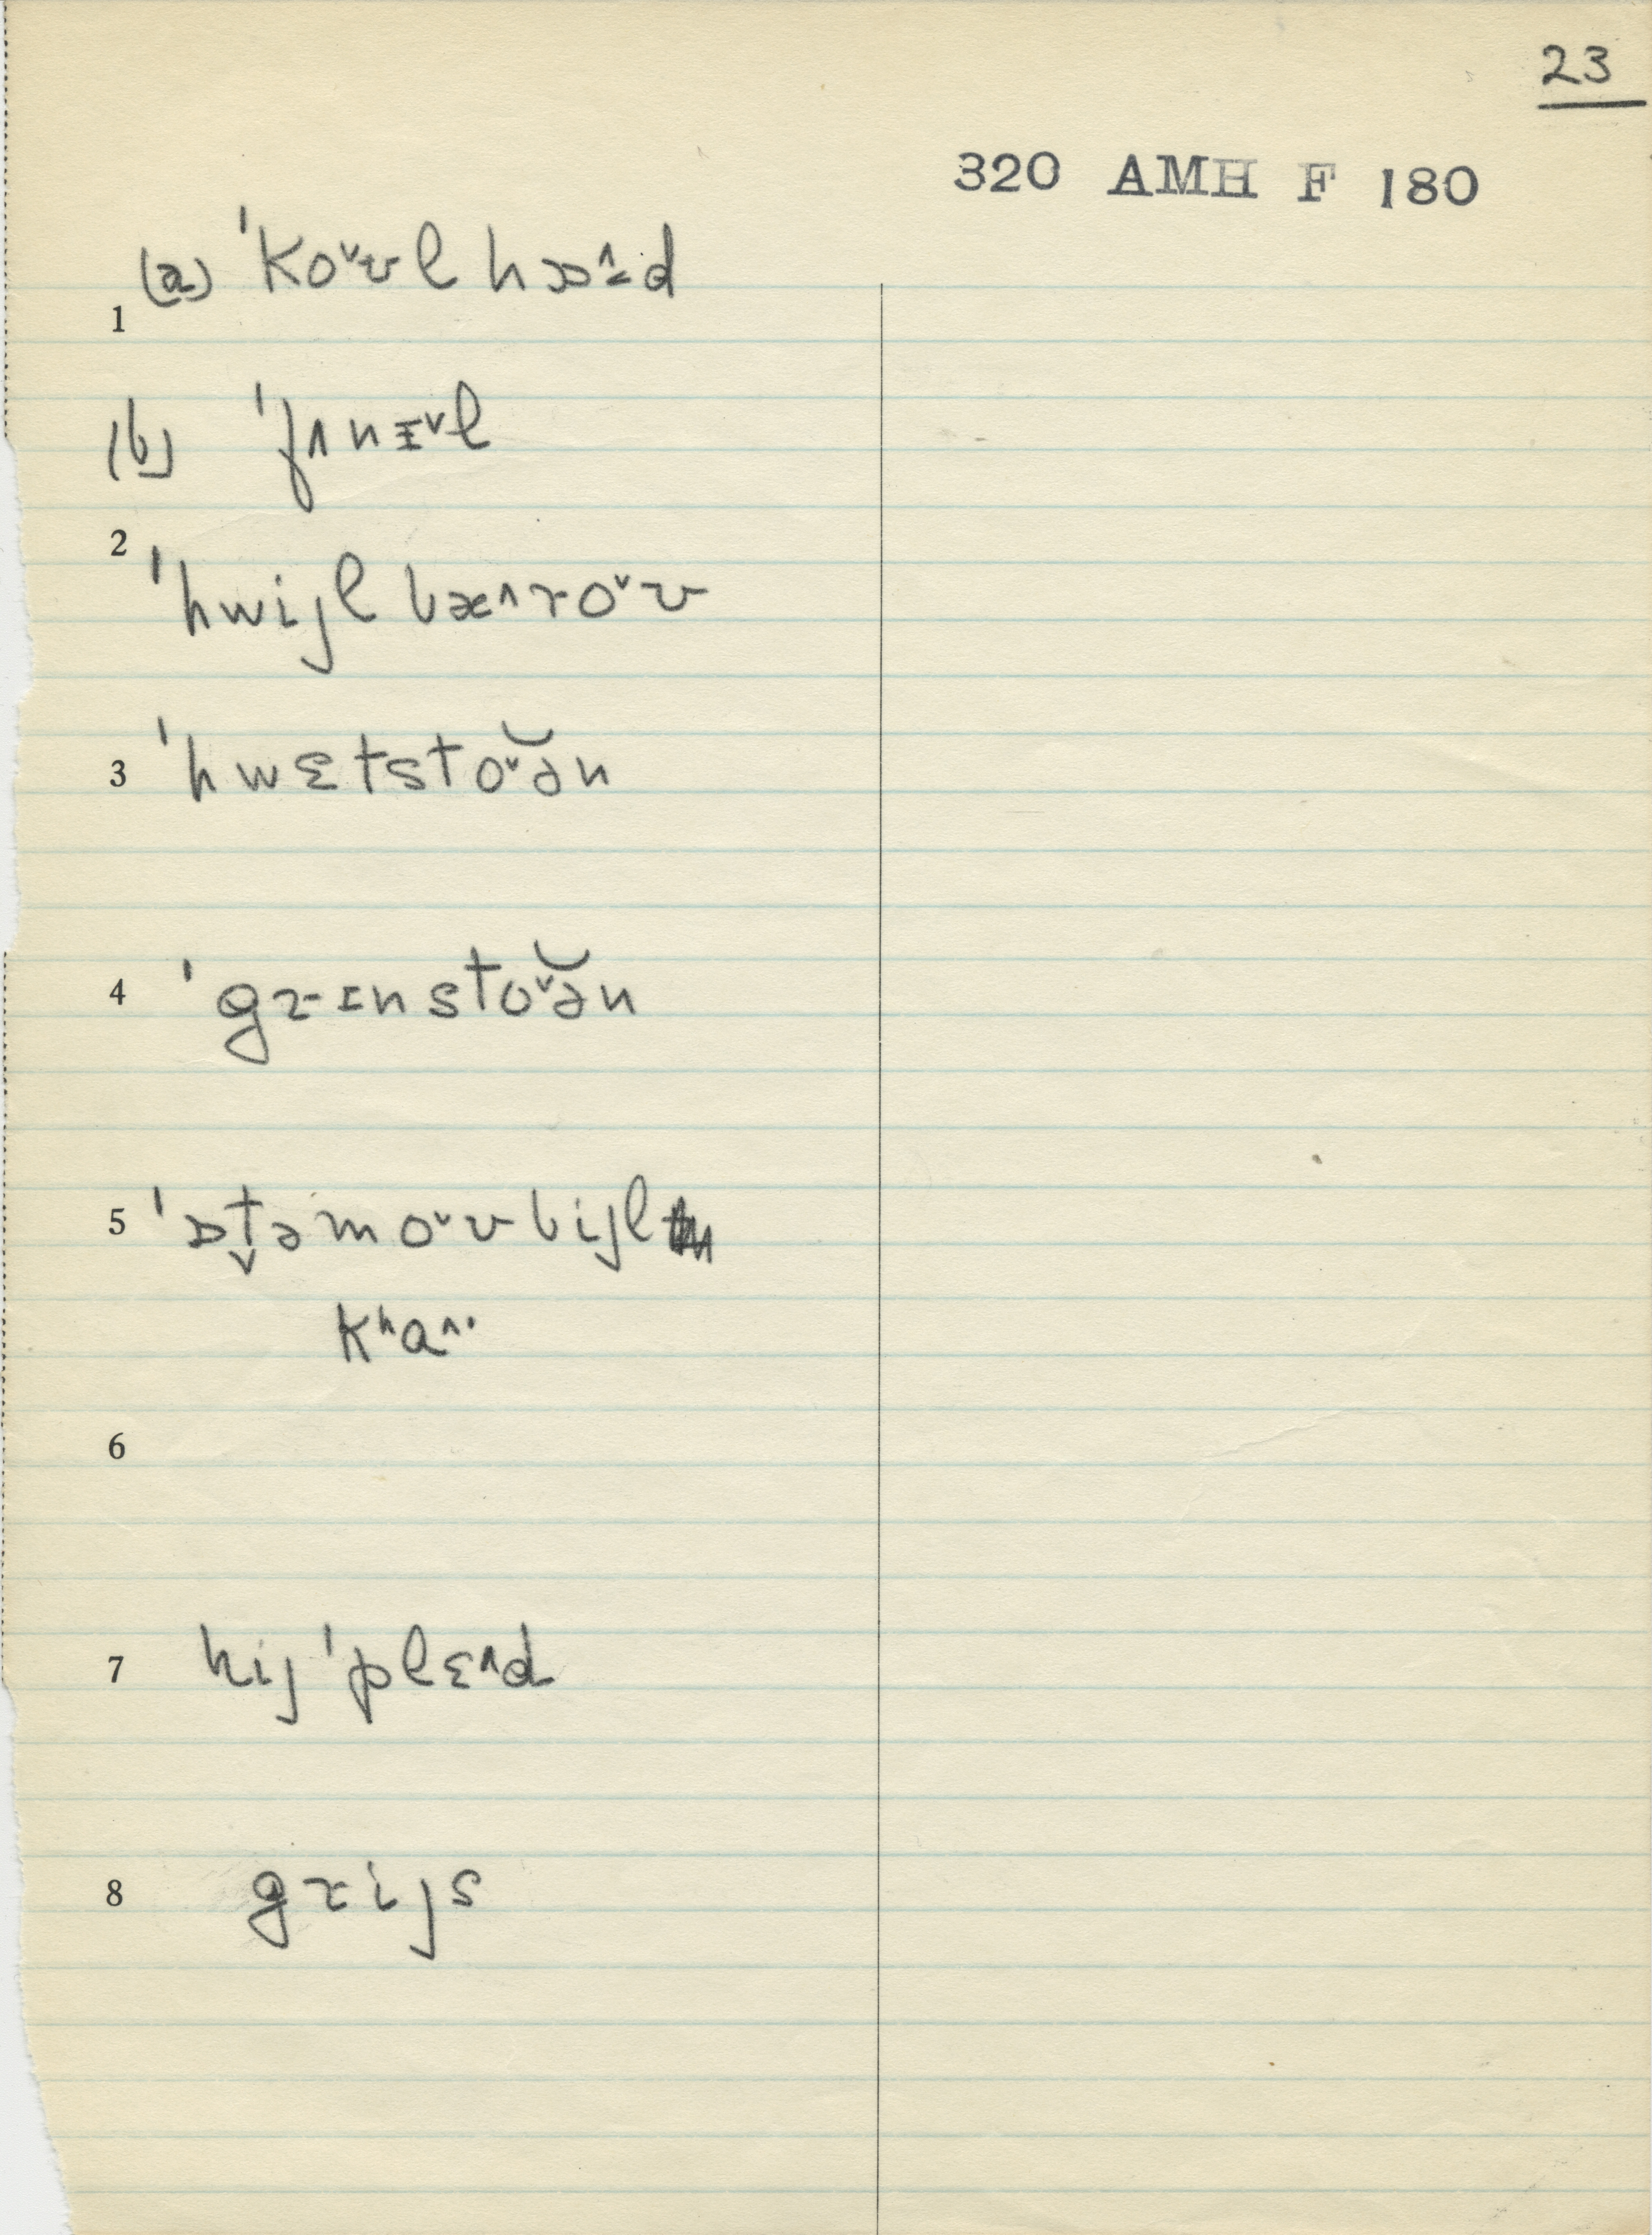 23
320 AMH F 180
(a) ˈkoˇʊl hɒ^d
1
(b) ˈfʌnɪˇl
2
ˈhwijl bæ^roˇʊ
3 ˈhwɛtstoˇ̆ən
4 ˈgrɪnstoˇ̆ən
5 ˈɒt̬əmoˇʊbijl
kʰa^·
6
7 hij ˈplɛ^d
8 grijs